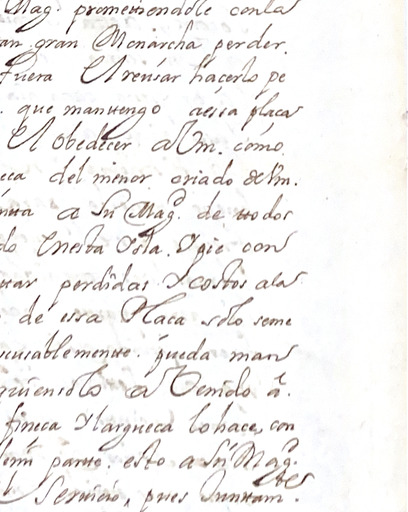 Mag. prometiendole con la
an gran Monarcha perder.
fuera El reusar hacerlo pe
que mantengo a essa plaça
El obedecer a Vm. como
del menor criado de Vm.
a Su Magd. de todos
do En esta Ysla. Y que con
perdidas Y costos a la
de essa Plaça solo seme
queda man
a Venido â.
fineça Y largueça lo hace, con
parte. esto a Su Magd.
Servicio, pues Juntamtes.